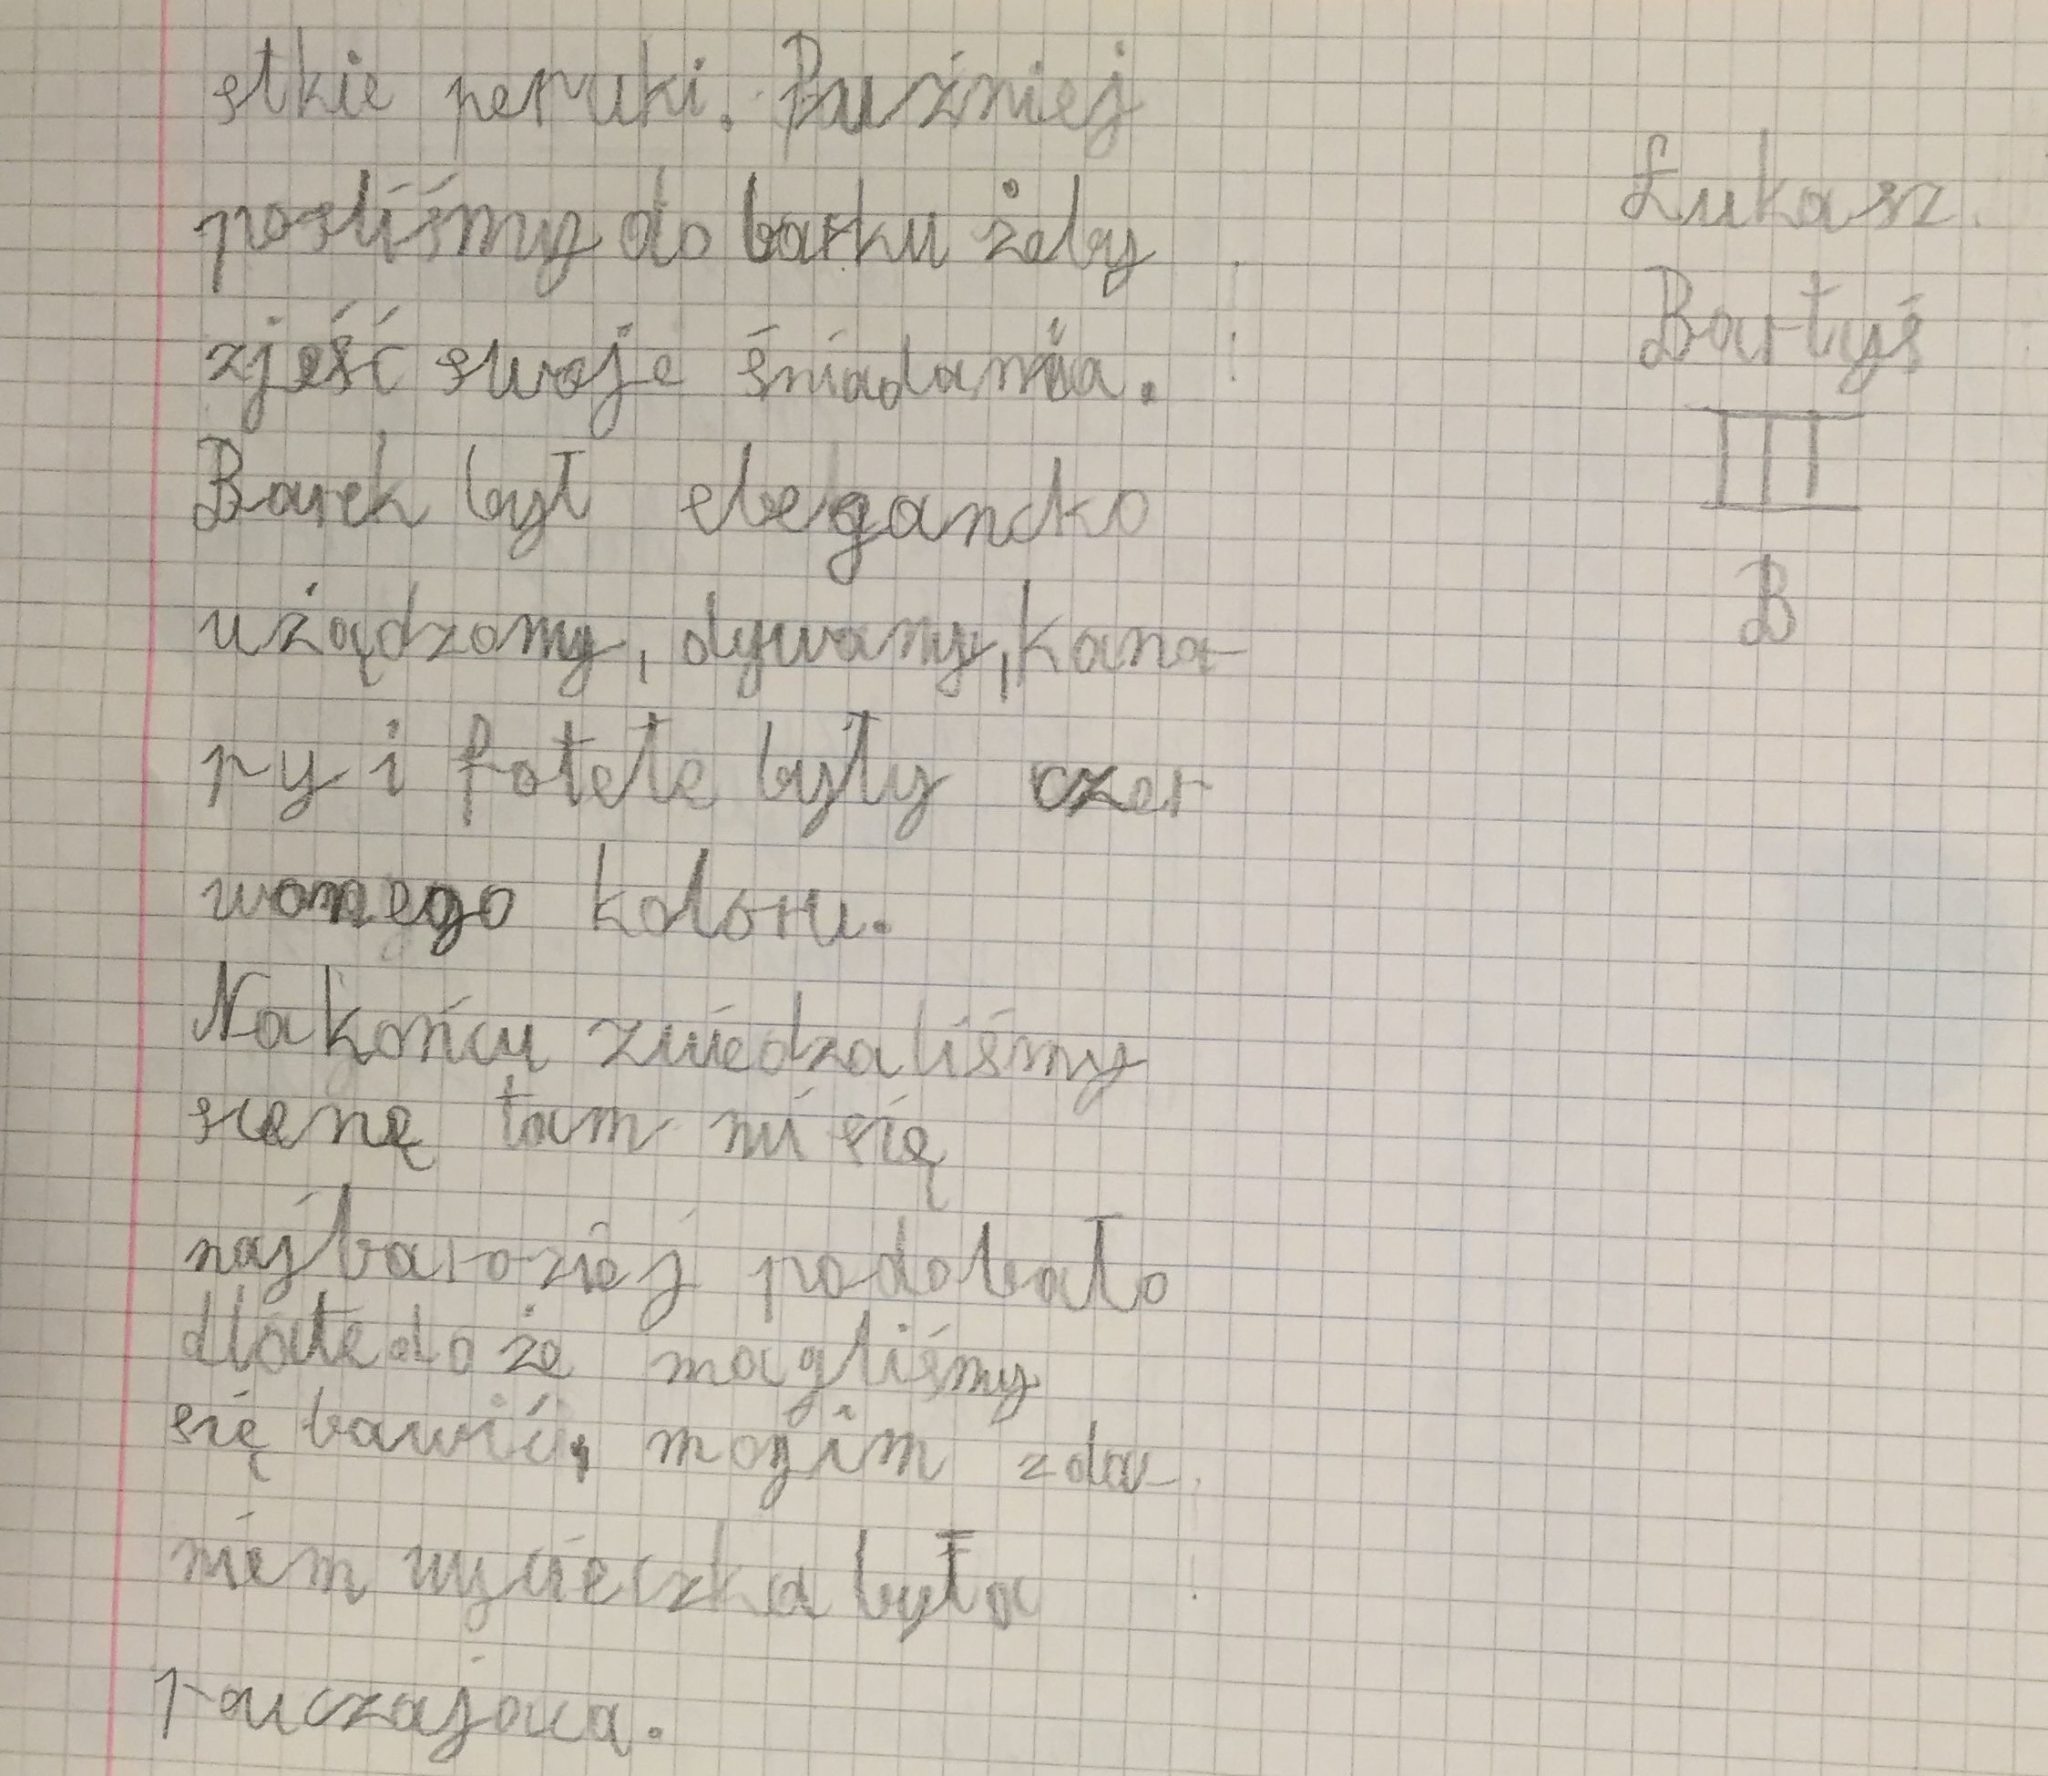 stkie peruki. Puźniej
posliśmy do barku żeby
zjeść swoje śniadania.
Barek był elegancko
użądzony, dywany, kana-
py i fotele były czer
wonego koloru.
Na końcu zwiedzaliśmy
scenę tam mi się
najbardziej podobało
dlatedo że mogliśmy
się bawić, mojim zda-
niem wycieczka była
pouczająca.
Łukasz
Bartyś
III
B